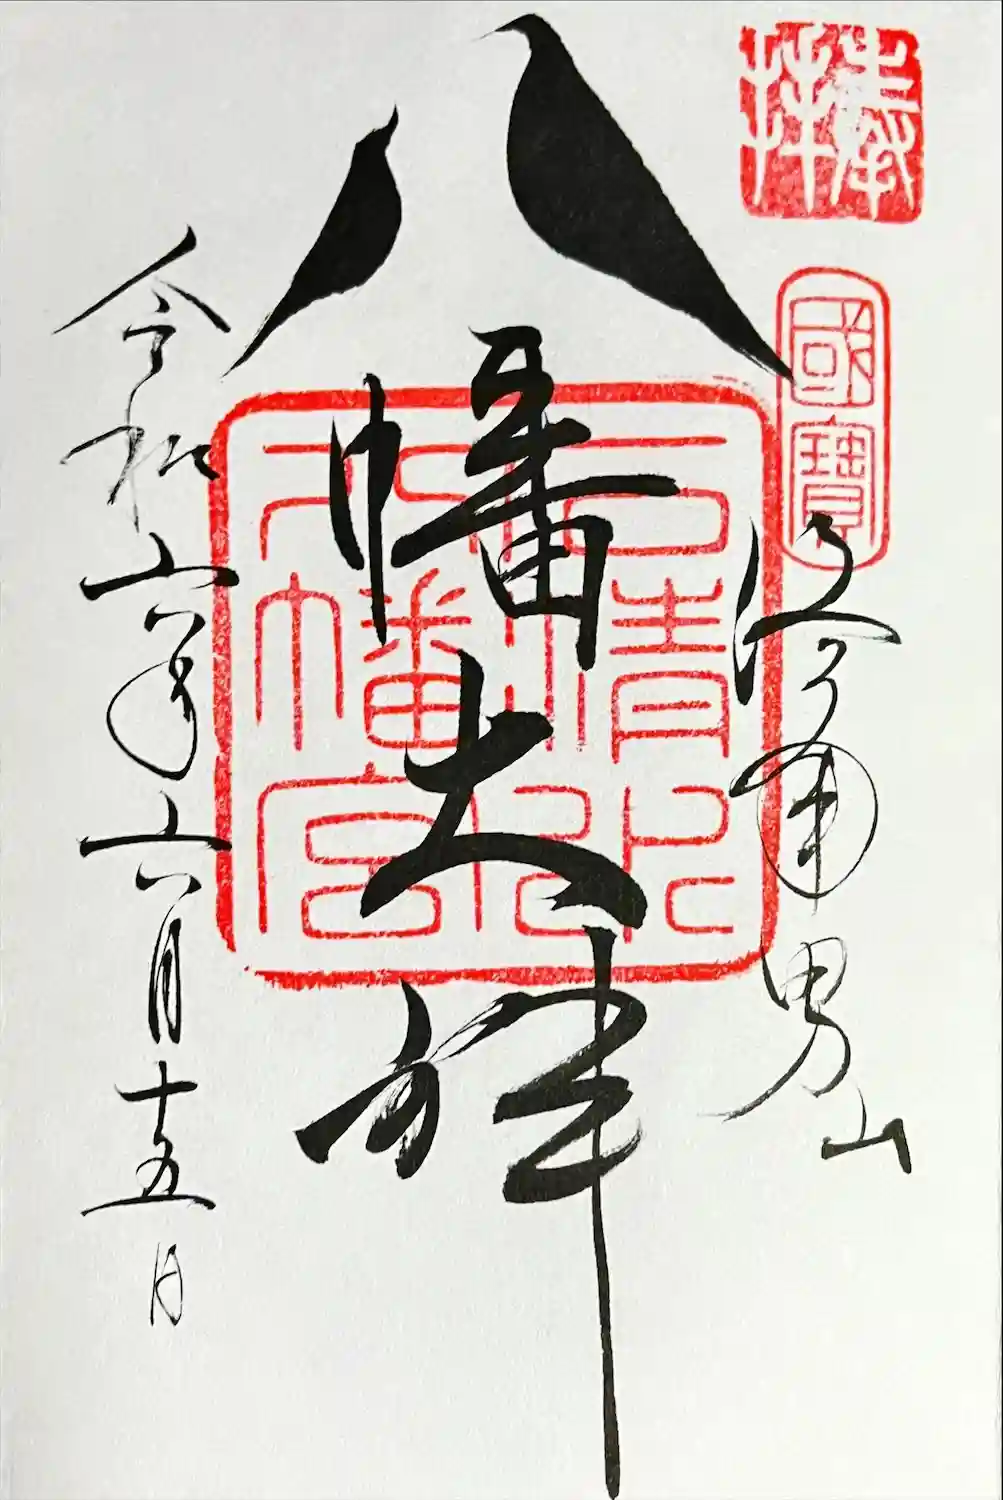 奉拝
國寶
洛南男山
八幡大神
石清水八幡宮
令和六年六月十五日